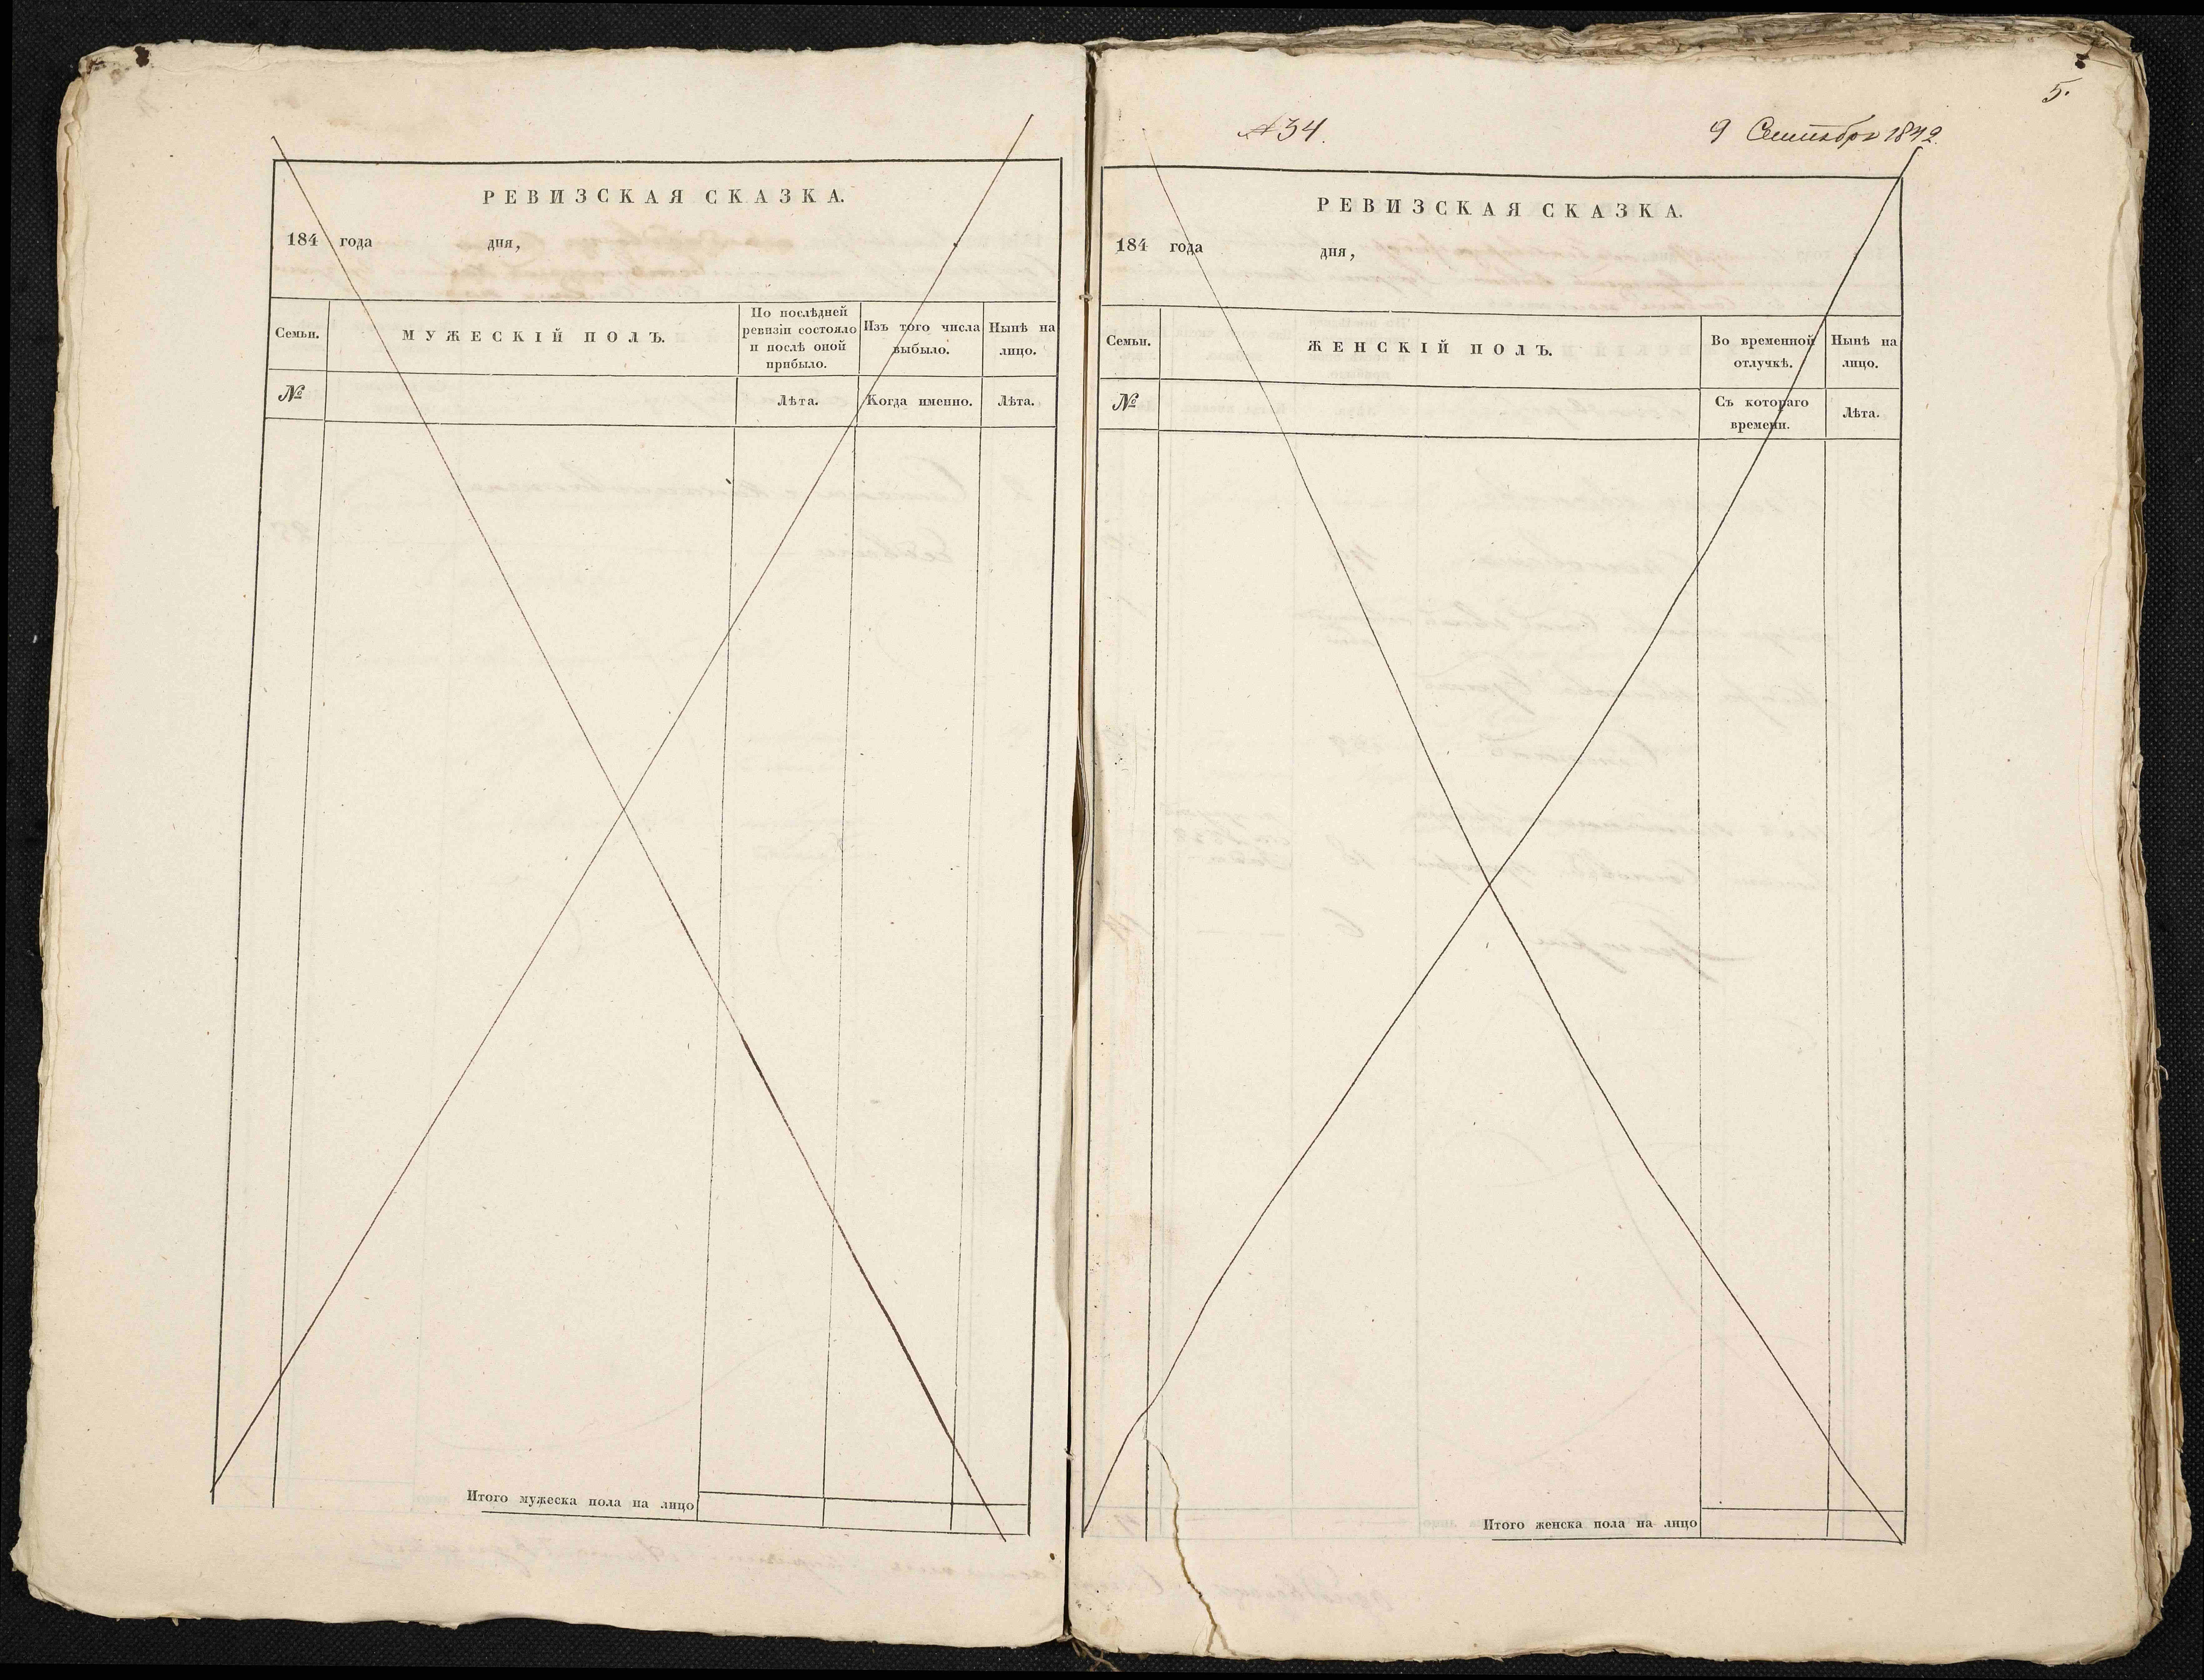 РЕВИЗСКАЯ СКАЗКА.
184 года дня,
Семьи.
МУЖЕСКІЙ ПОЛЪ.
По послѣдней
ревизіи состояло
и послѣ оной
прибыло.
Изъ того числа
выбыло.
Нынѣ на
лицо.
№
Лѣта.
Когда именно.
Лѣта.
Итого мужеска пола на лицо
5.
№34.
9 Сентября 1842.
РЕВИЗСКАЯ СКАЗКА.
184 года дня,
Семьи.
ЖЕНСКІЙ ПОЛЪ.
Во временной
отлучкѣ.
Нынѣ на
лицо.
№
Съ котораго
времени.
Лѣта.
Итого женска пола на лицо